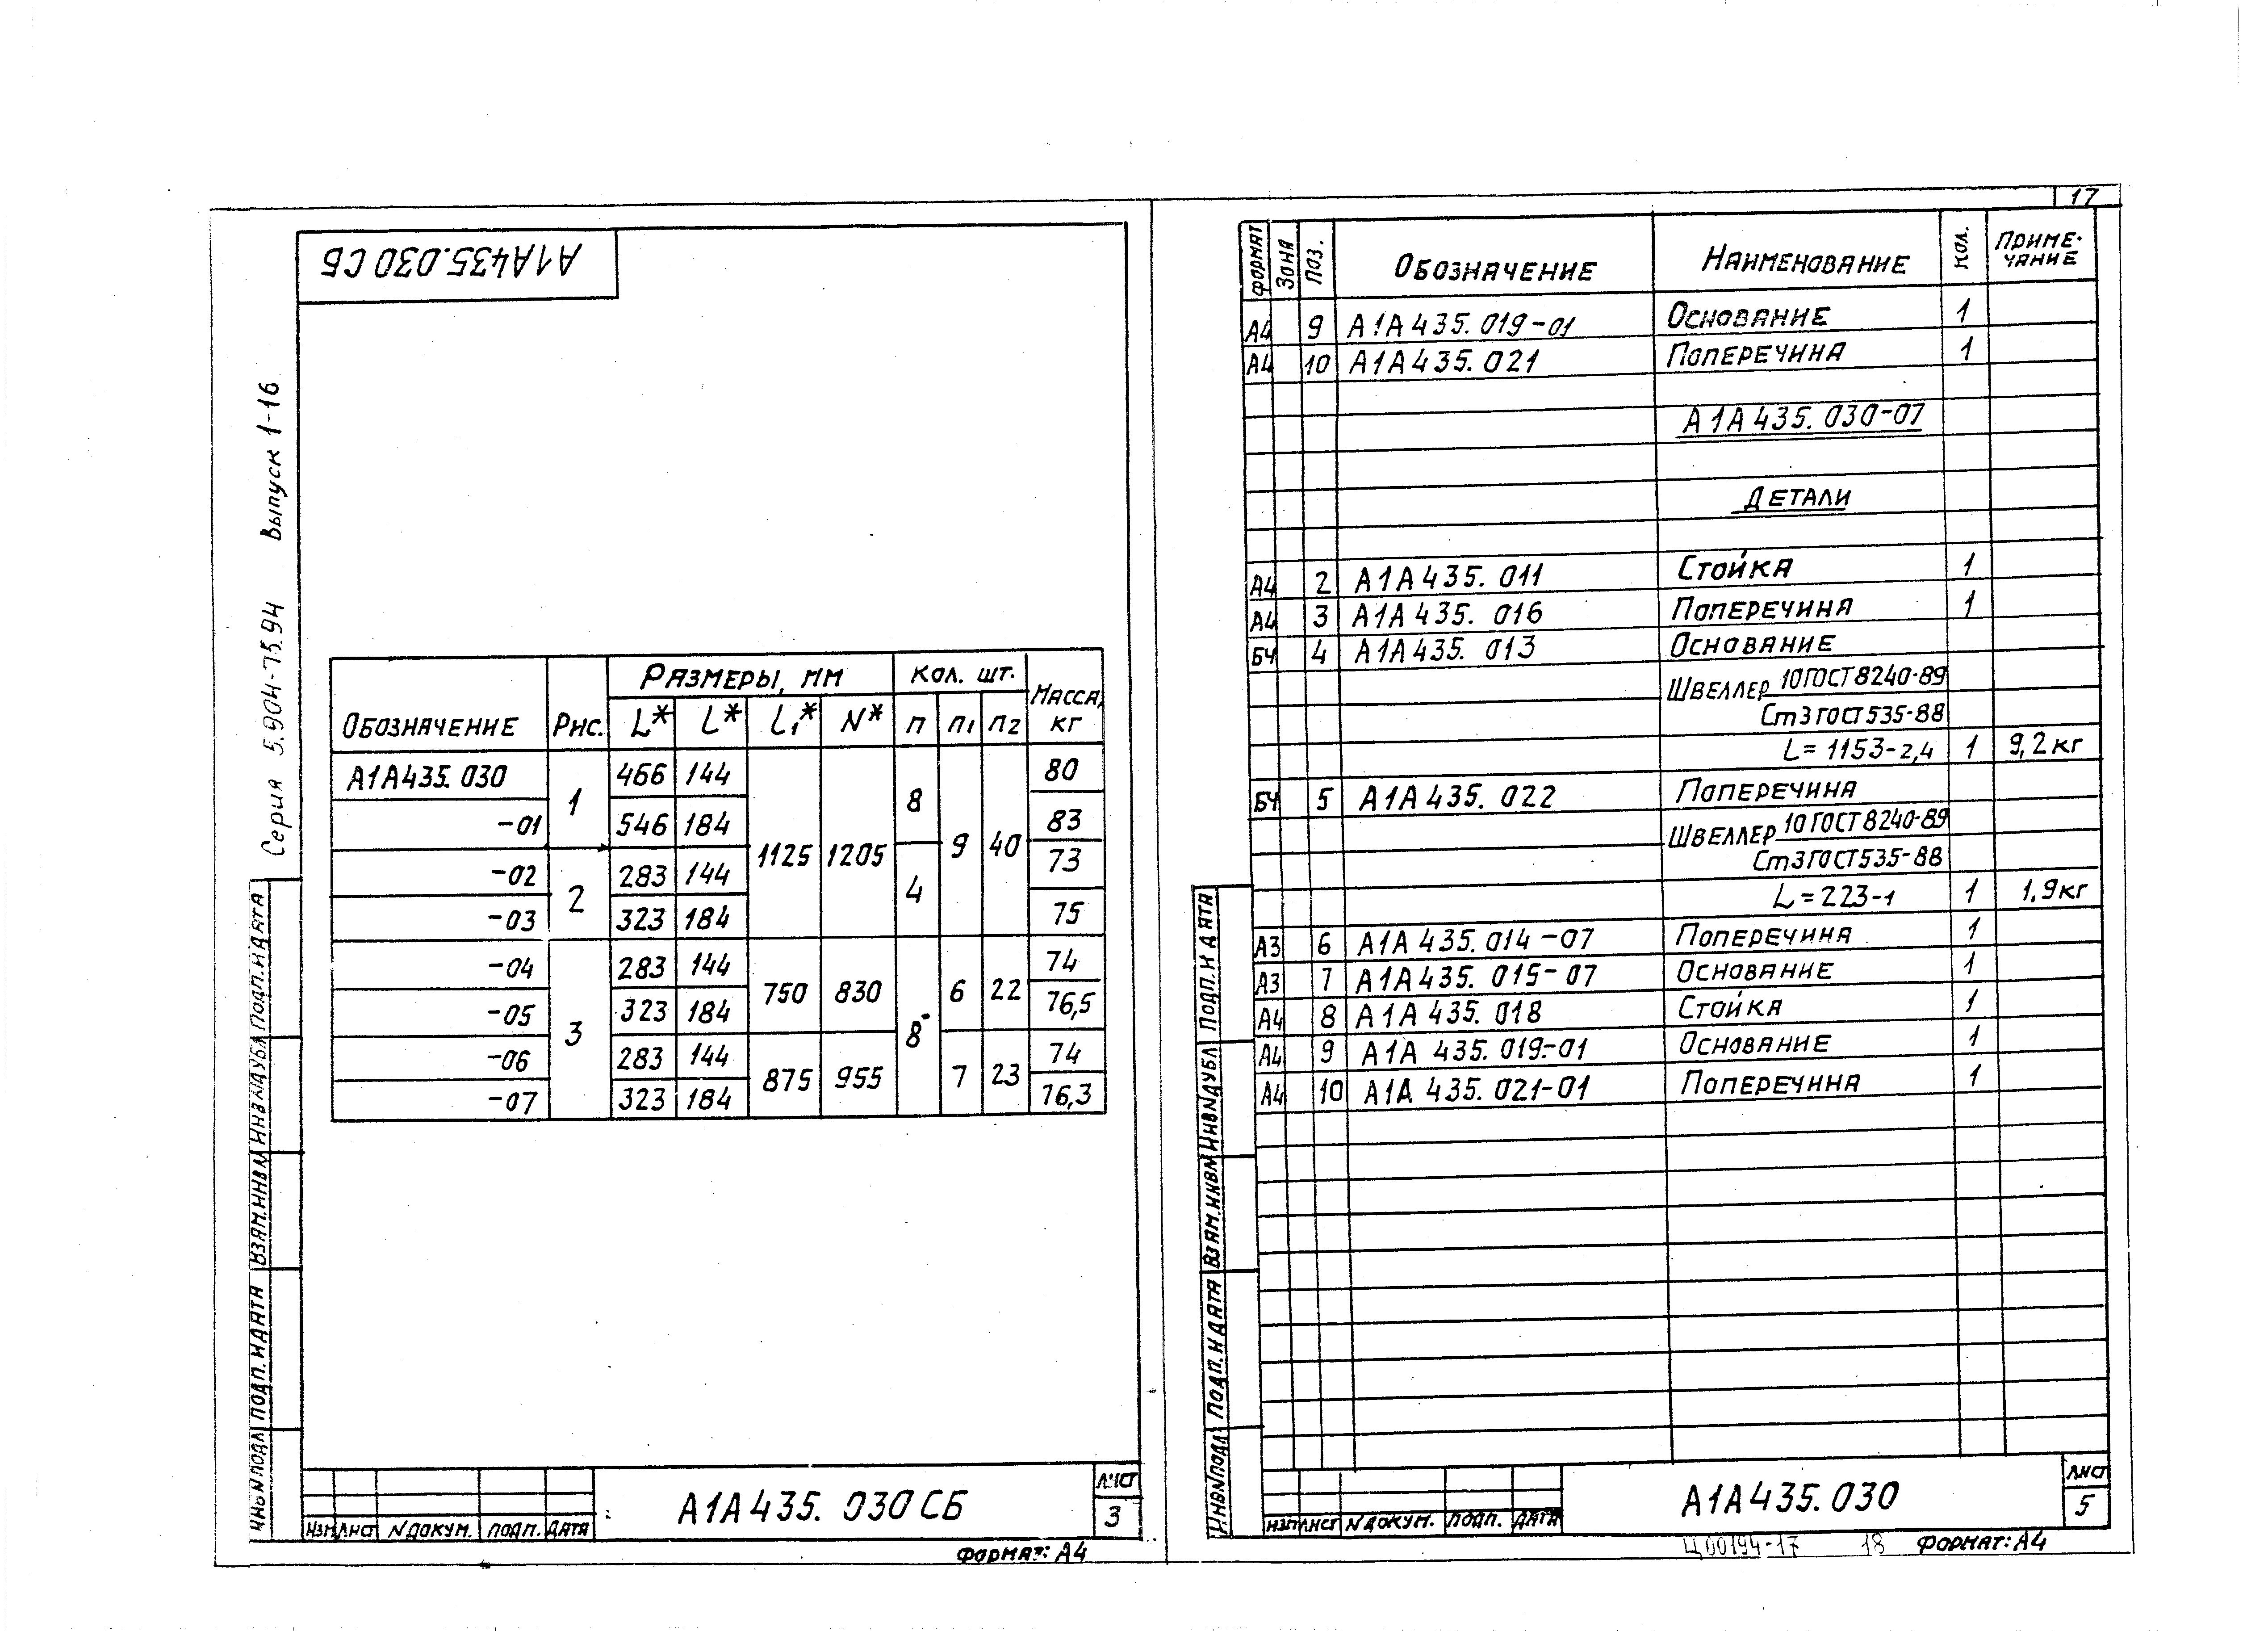 17
А1А435.030 СБ
Серия 5.904-75.94 Выпуск 1-16
Обозначение Рис. Размеры, мм Кол. шт. Масса, кг
L* l* l₁* N* п п1 п2
А1А435.030 1 466 144 1125 1205 8 9 40 80
-01 546 184 83
-02 2 283 144 4 73
-03 323 184 75
-04 3 283 144 750 830 8 6 22 74
-05 323 184 76,5
-06 283 144 875 955 7 23 74
-07 323 184 76,3
Инв.N подл Подп. и дата Взам.инв.N Инв.N дубл Подп. и дата
Изм Лист N докум. Подп. Дата
А1А435.030 СБ
Лист
3
Формат: А4
Формат Зона Поз. Обозначение Наименование Кол. Приме-
чание
А4 9 А1А435.019-01 Основание 1
А4 10 А1А435.021 Поперечина 1
А1А435.030-07
Детали
А4 2 А1А435.011 Стойка 1
А4 3 А1А435.016 Поперечина 1
БЧ 4 А1А435.013 Основание
Швеллер 10 ГОСТ 8240-89
Ст3 ГОСТ 535-88
L=1153-2,4 1 9,2 кг
БЧ 5 А1А435.022 Поперечина
Швеллер 10 ГОСТ 8240-89
Ст3 ГОСТ 535-88
L=223-1 1 1,9 кг
А3 6 А1А435.014-07 Поперечина 1
А3 7 А1А435.015-07 Основание 1
А4 8 А1А435.018 Стойка 1
А4 9 А1А435.019-01 Основание 1
А4 10 А1А435.021-01 Поперечина 1
Инв.N подл Подп. и дата Взам.инв.N Инв.N дубл Подп. и дата
Изм Лист N докум. Подп. Дата
А1А435.030
Лист
5
Ц00194-17 18 Формат: А4